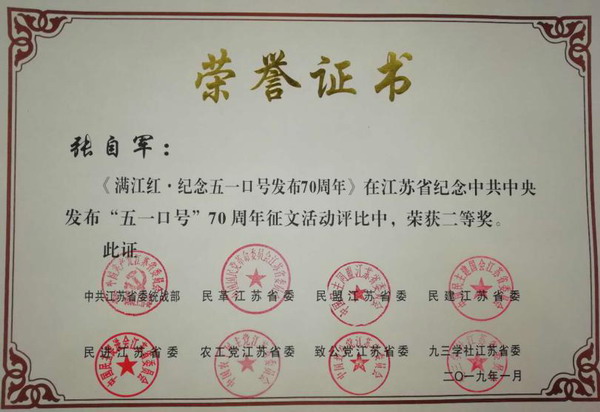 荣誉证书
张自军：
《满江红·纪念五一口号发布70周年》在江苏省纪念中共中央
发布“五一口号”70周年征文活动评比中，荣获二等奖。
此证
中共江苏省委统战部 民革江苏省委 民盟江苏省委 民建江苏省委
民进江苏省委 农工党江苏省委 致公党江苏省委 九三学社江苏省委
二〇一九年一月